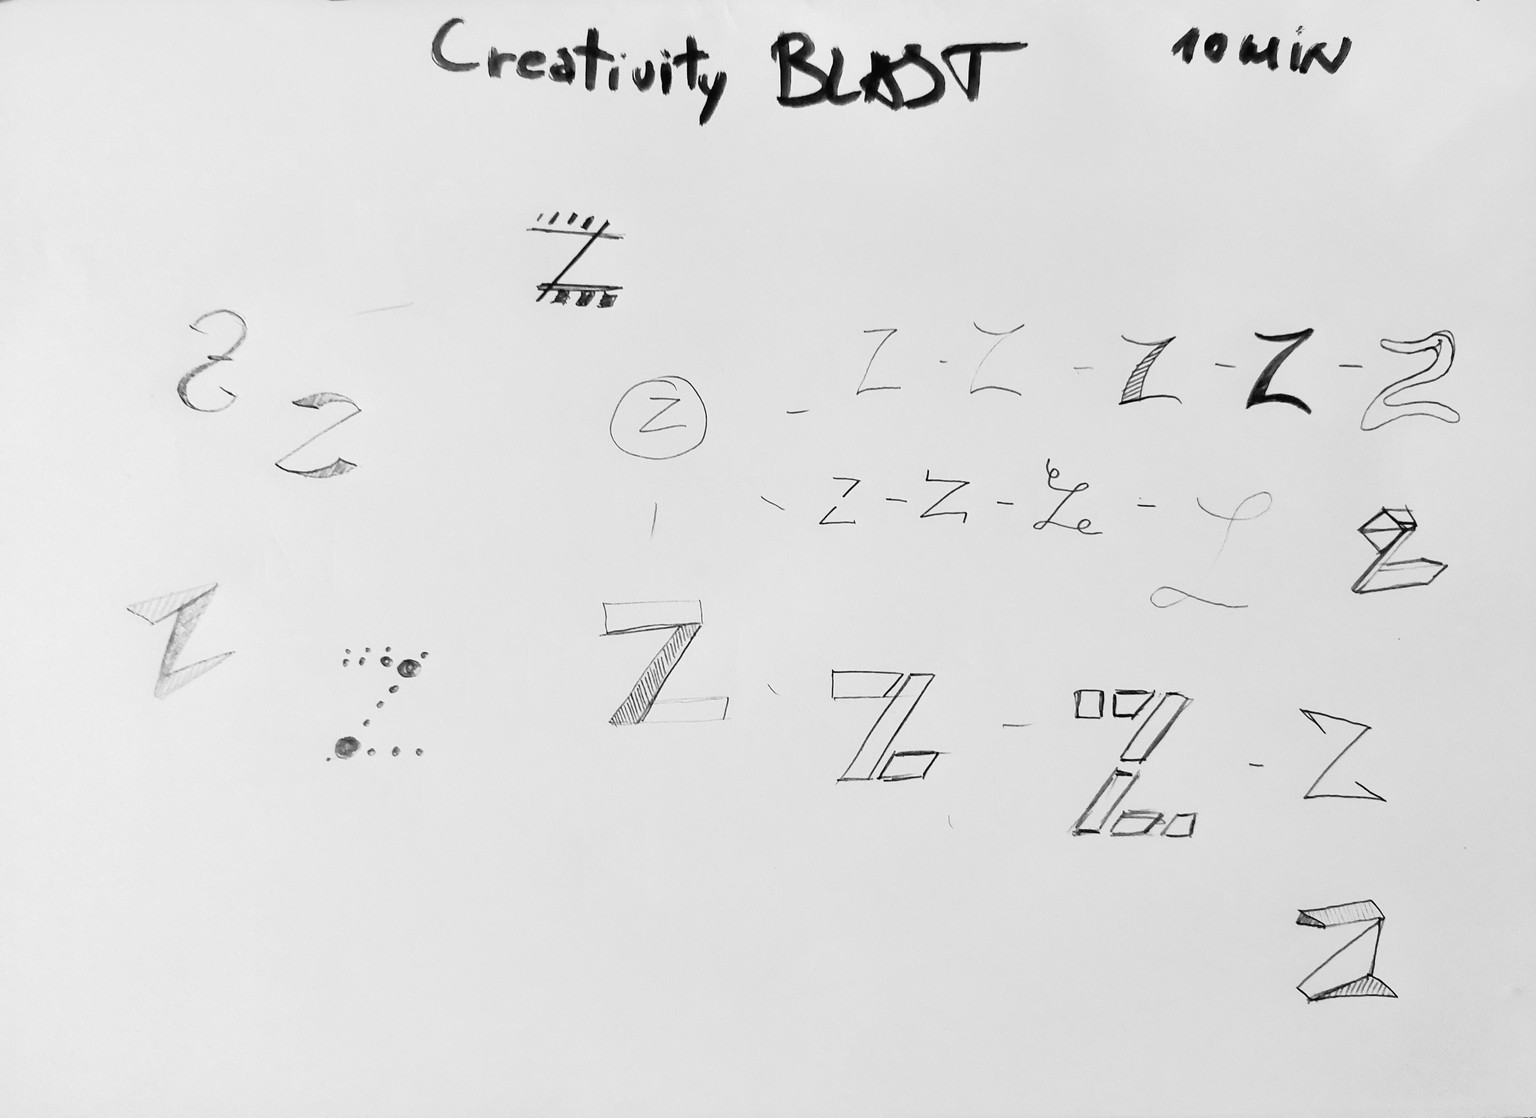 Creativity BLAST 10 MIN
Z
Z Z Z Z Z
Z
Z
Z
Z Z Z Z
Z
Z
Z
Z Z Z Z
Z
Z